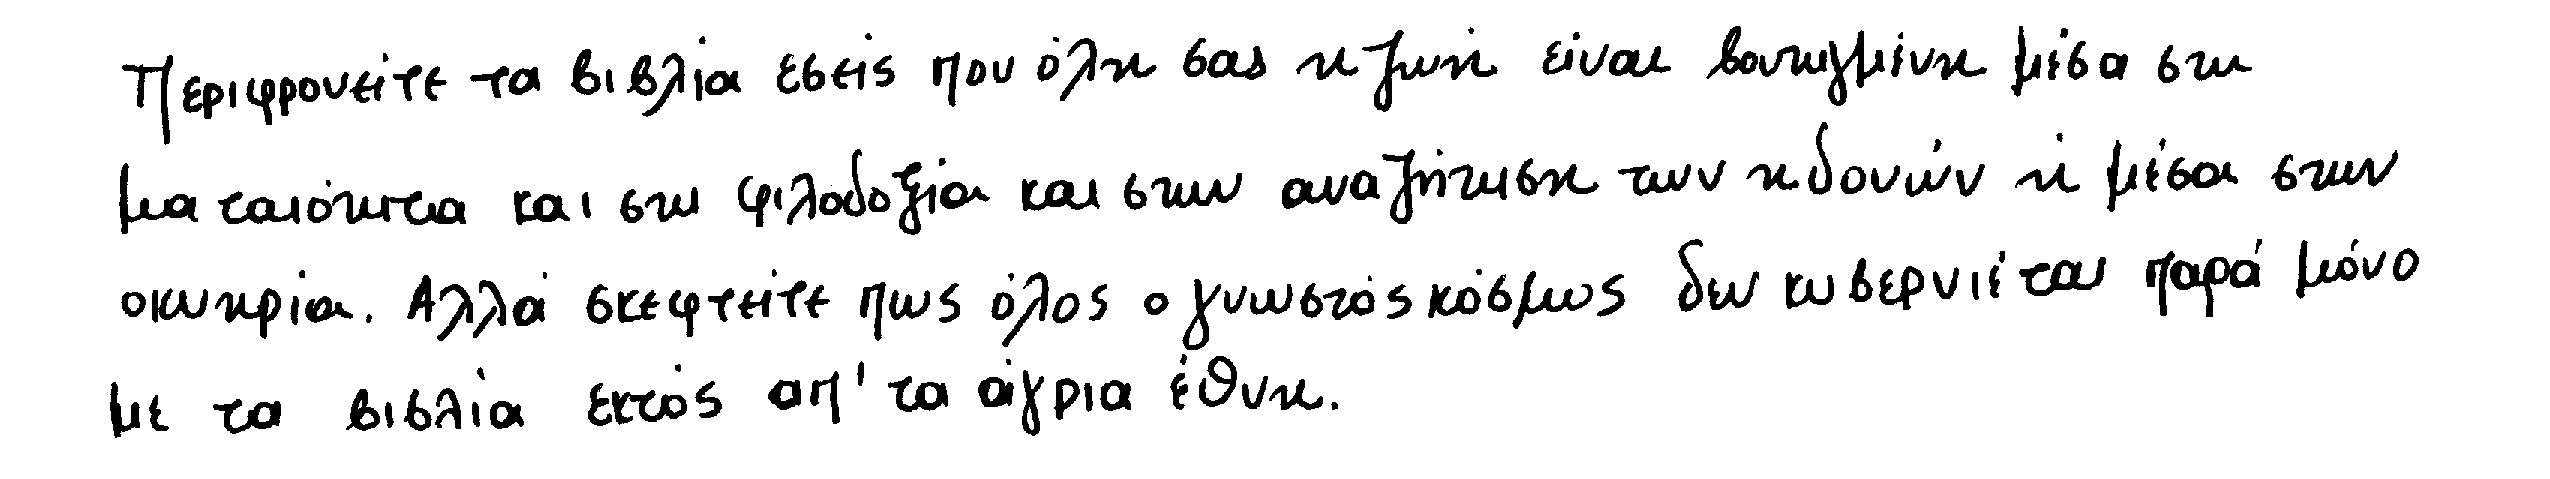 Περιφρονείτε τα βιβλία εσείς που όλη σας η ζωή είναι βουτηγμένη μέσα στη
ματαιότητα και στη φιλοδοξία και στην αναζήτηση των ηδονών ή μέσα στην
οκνηρία. Αλλά σκεφτείτε πως όλος ο γνωστός κόσμως δεν κυβερνιέται παρά μόνο
με τα βιβλία εκτός απ' τα άγρια έθνη.